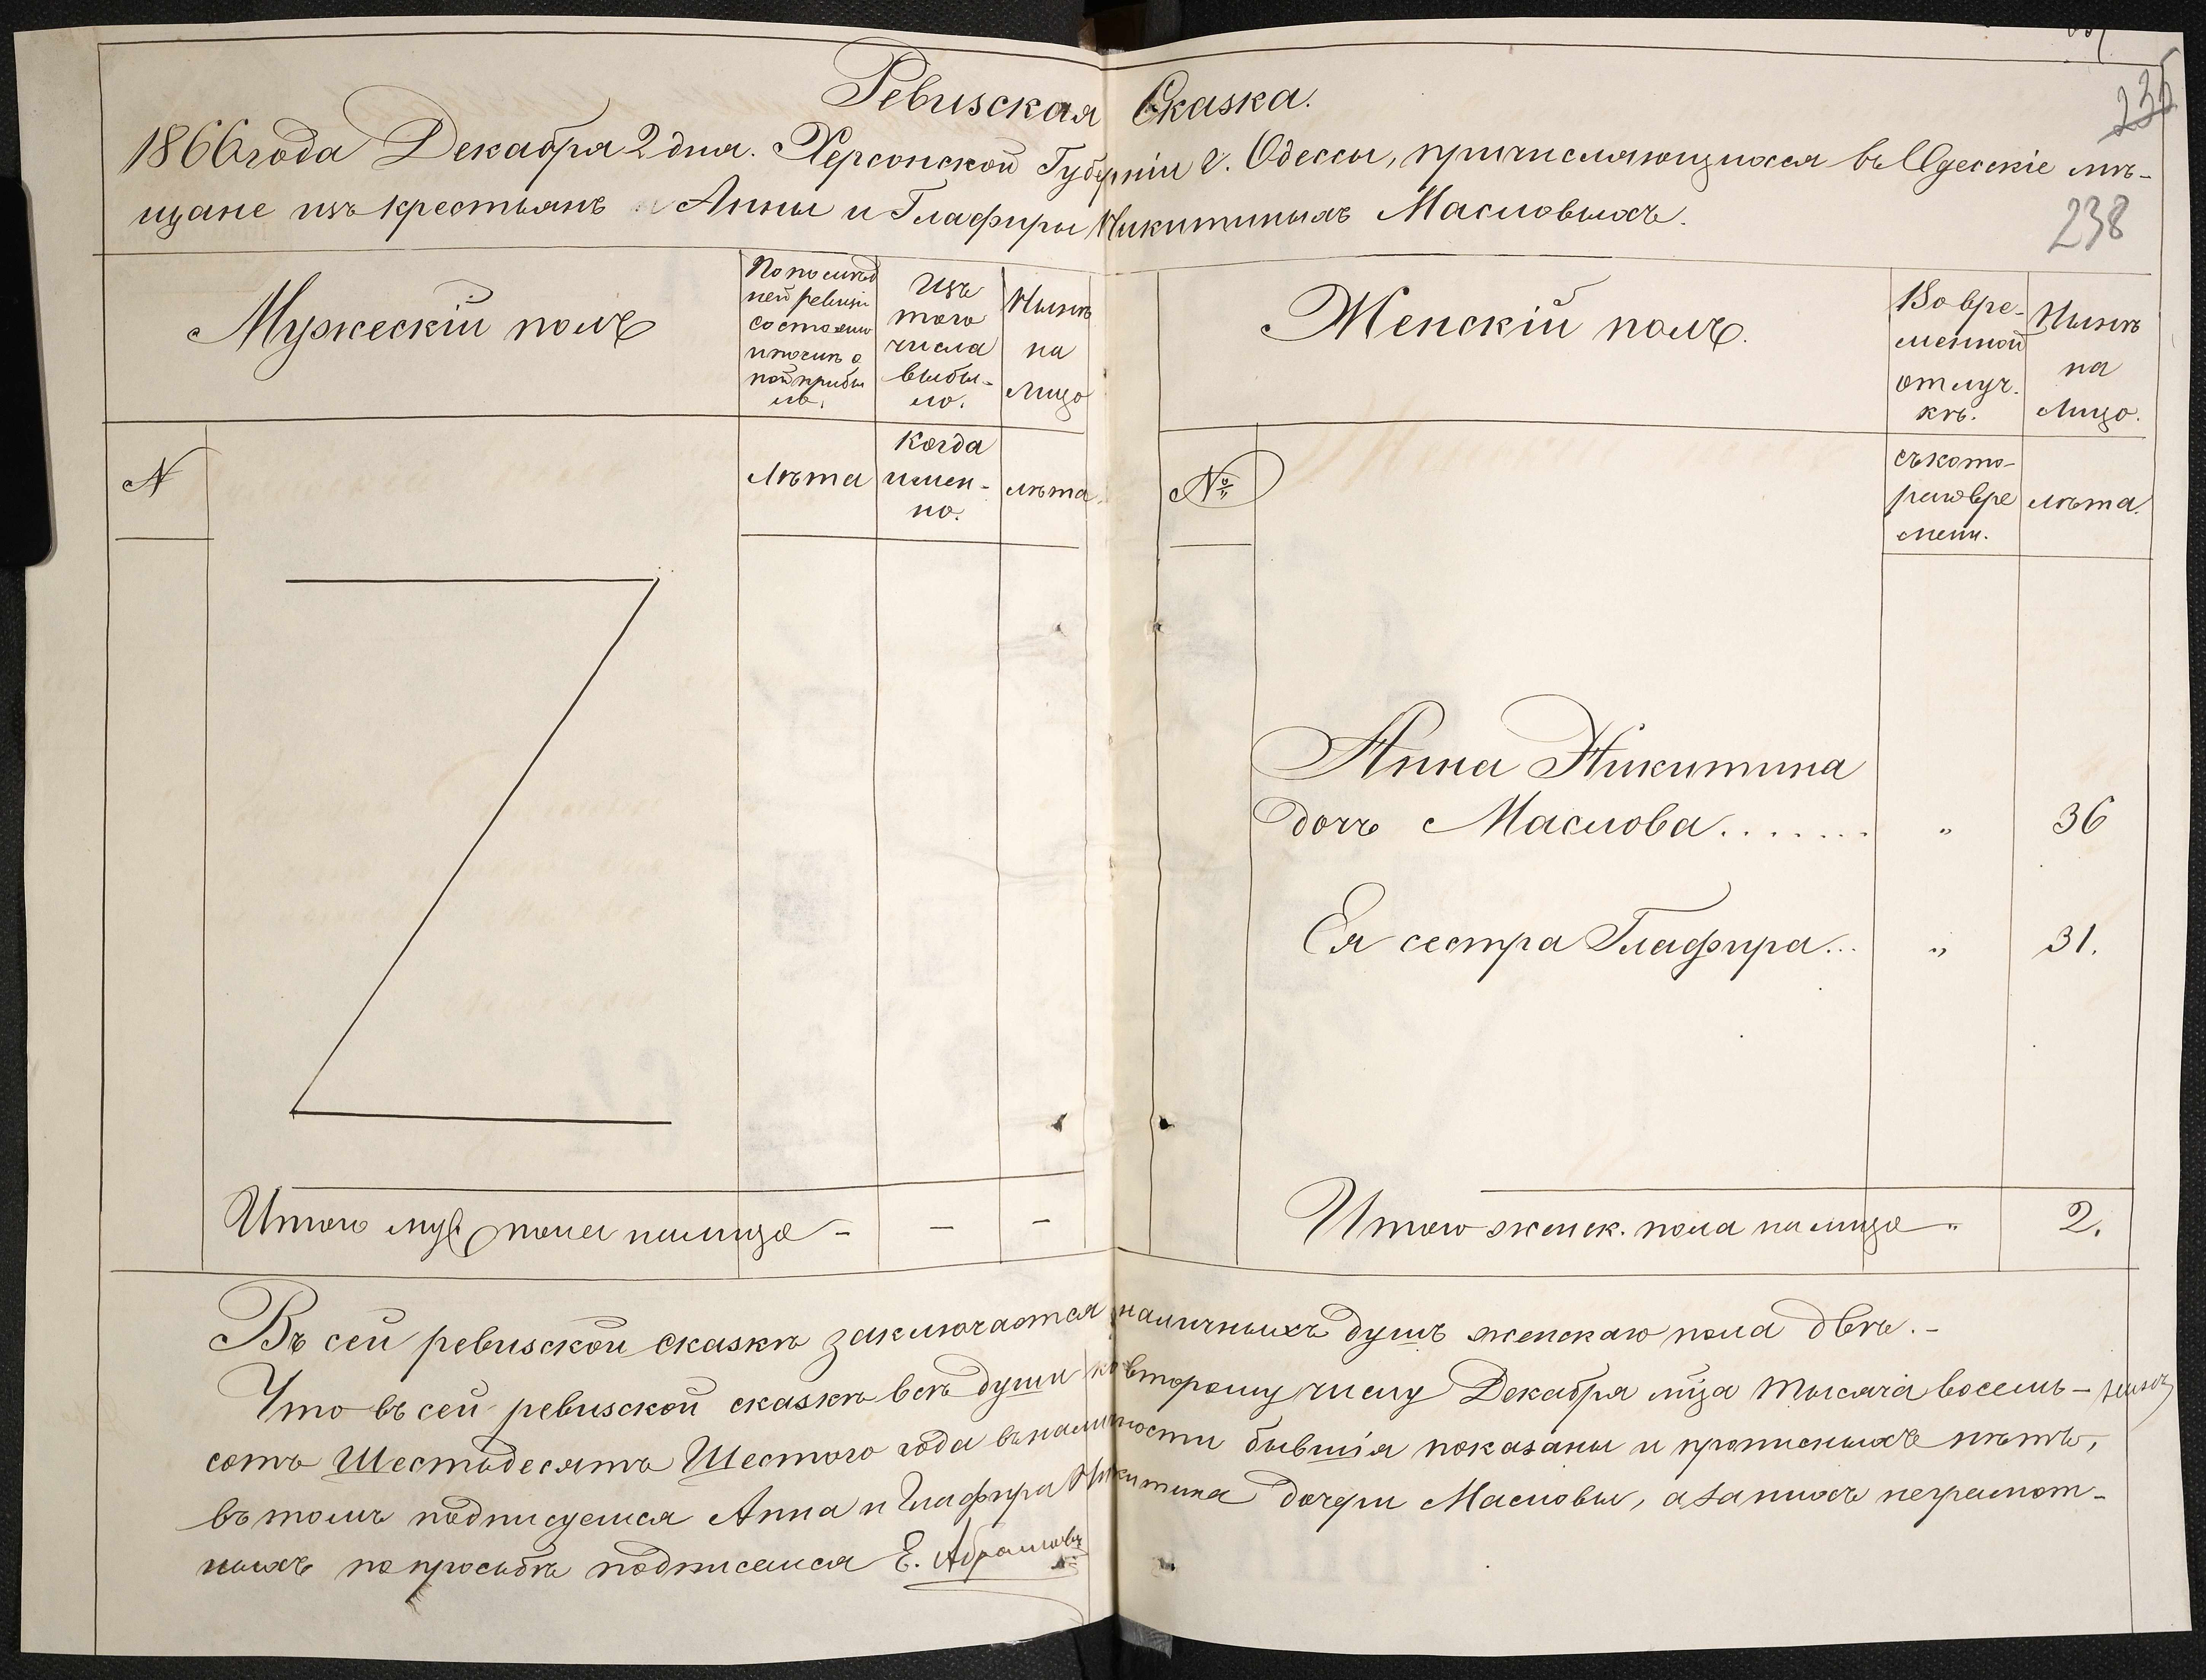 Ревизская Сказка.
235
1866 года Декабря 2 дня. Херсонской Губерніи г. Одессы, причисляющихся въ Одесскіе мѣ-
щане изъ крестьянъ Анны и Глафиры Никитиныхъ Масловыхъ.
238
Мужескій полъ
По послѣд
ней ревизіи
состояло
и послѣ о
ной прибы
ло.
Изъ
того
числа
выбы-
ло.
Нынѣ
на
лицо
N
Лѣта
Когда
имен-
но.
лѣта.
Итого муж. пола на лицо - - -
Женскій полъ.
Во вре-
менной
отлуч-
кѣ.
Нынѣ
на
лицо.
№
съ кото-
раго вре
мени.
лѣта.
Анна Никитина
дочь Маслова....... " 36
Ея сестра Глафира... " 31.
Итого женск. пола на лицо " 2.
Въ сей ревизской сказкѣ заключается наличныхъ душъ женскаго пола двѣ.-
Что въ сей ревизской сказкѣ всѣ души ко второму числу Декабря мѣца тысяча восемь-
сотъ Шестьдесятъ Шестого года въ наличности бывшія показаны и прописныхъ нѣтъ,
въ томъ подписуемся Анна и Глафира Никитина дочери Масловы, а за нихъ неграмот-
ныхъ по просьбѣ подписался Е. Абрамовъ